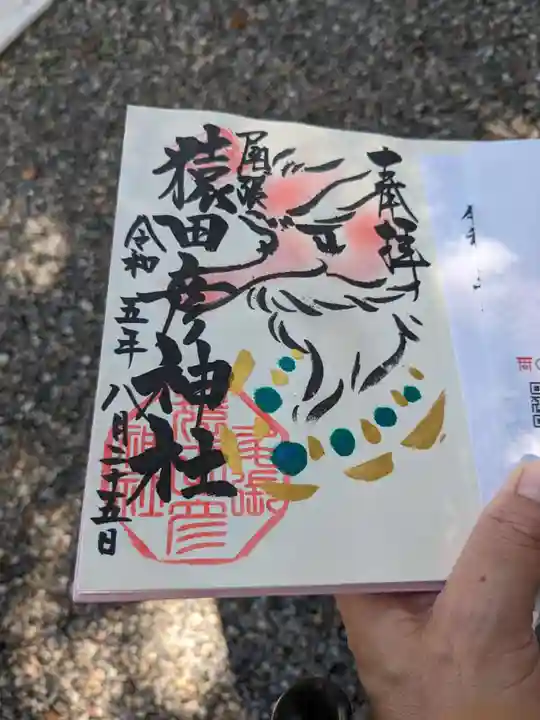 奉拝
尾張
猿田彦神社
令和五年八月二十五日